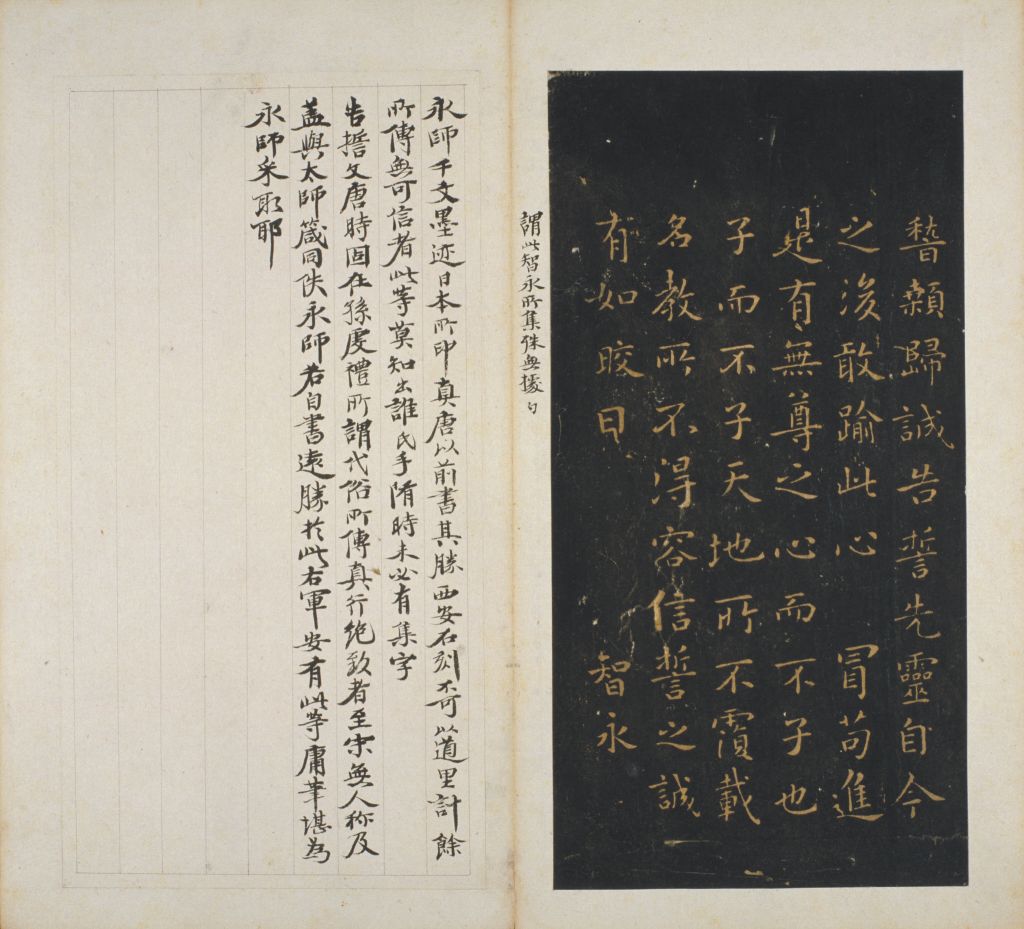 稽顙歸誠告誓先靈自今
之後敢踰此心 冒苟進
是有無尊之心而不子也
子而不子天地所不覆載
名教所不得容信誓之誠
有如皎日 智永
謂此智永所集殊無據也
永師千文墨迹日本所印真唐以前書其勝西安石刻不可以道里計餘
所傳無可信者此等莫知出誰氏手隋時未必有集字
告誓文唐時固在孫虔禮所謂代俗所傳真行絕致者至宋無人称及
蓋與太師箴同佚永師若自書遠勝於此右軍安有此等庸筆堪為
永師采取耶